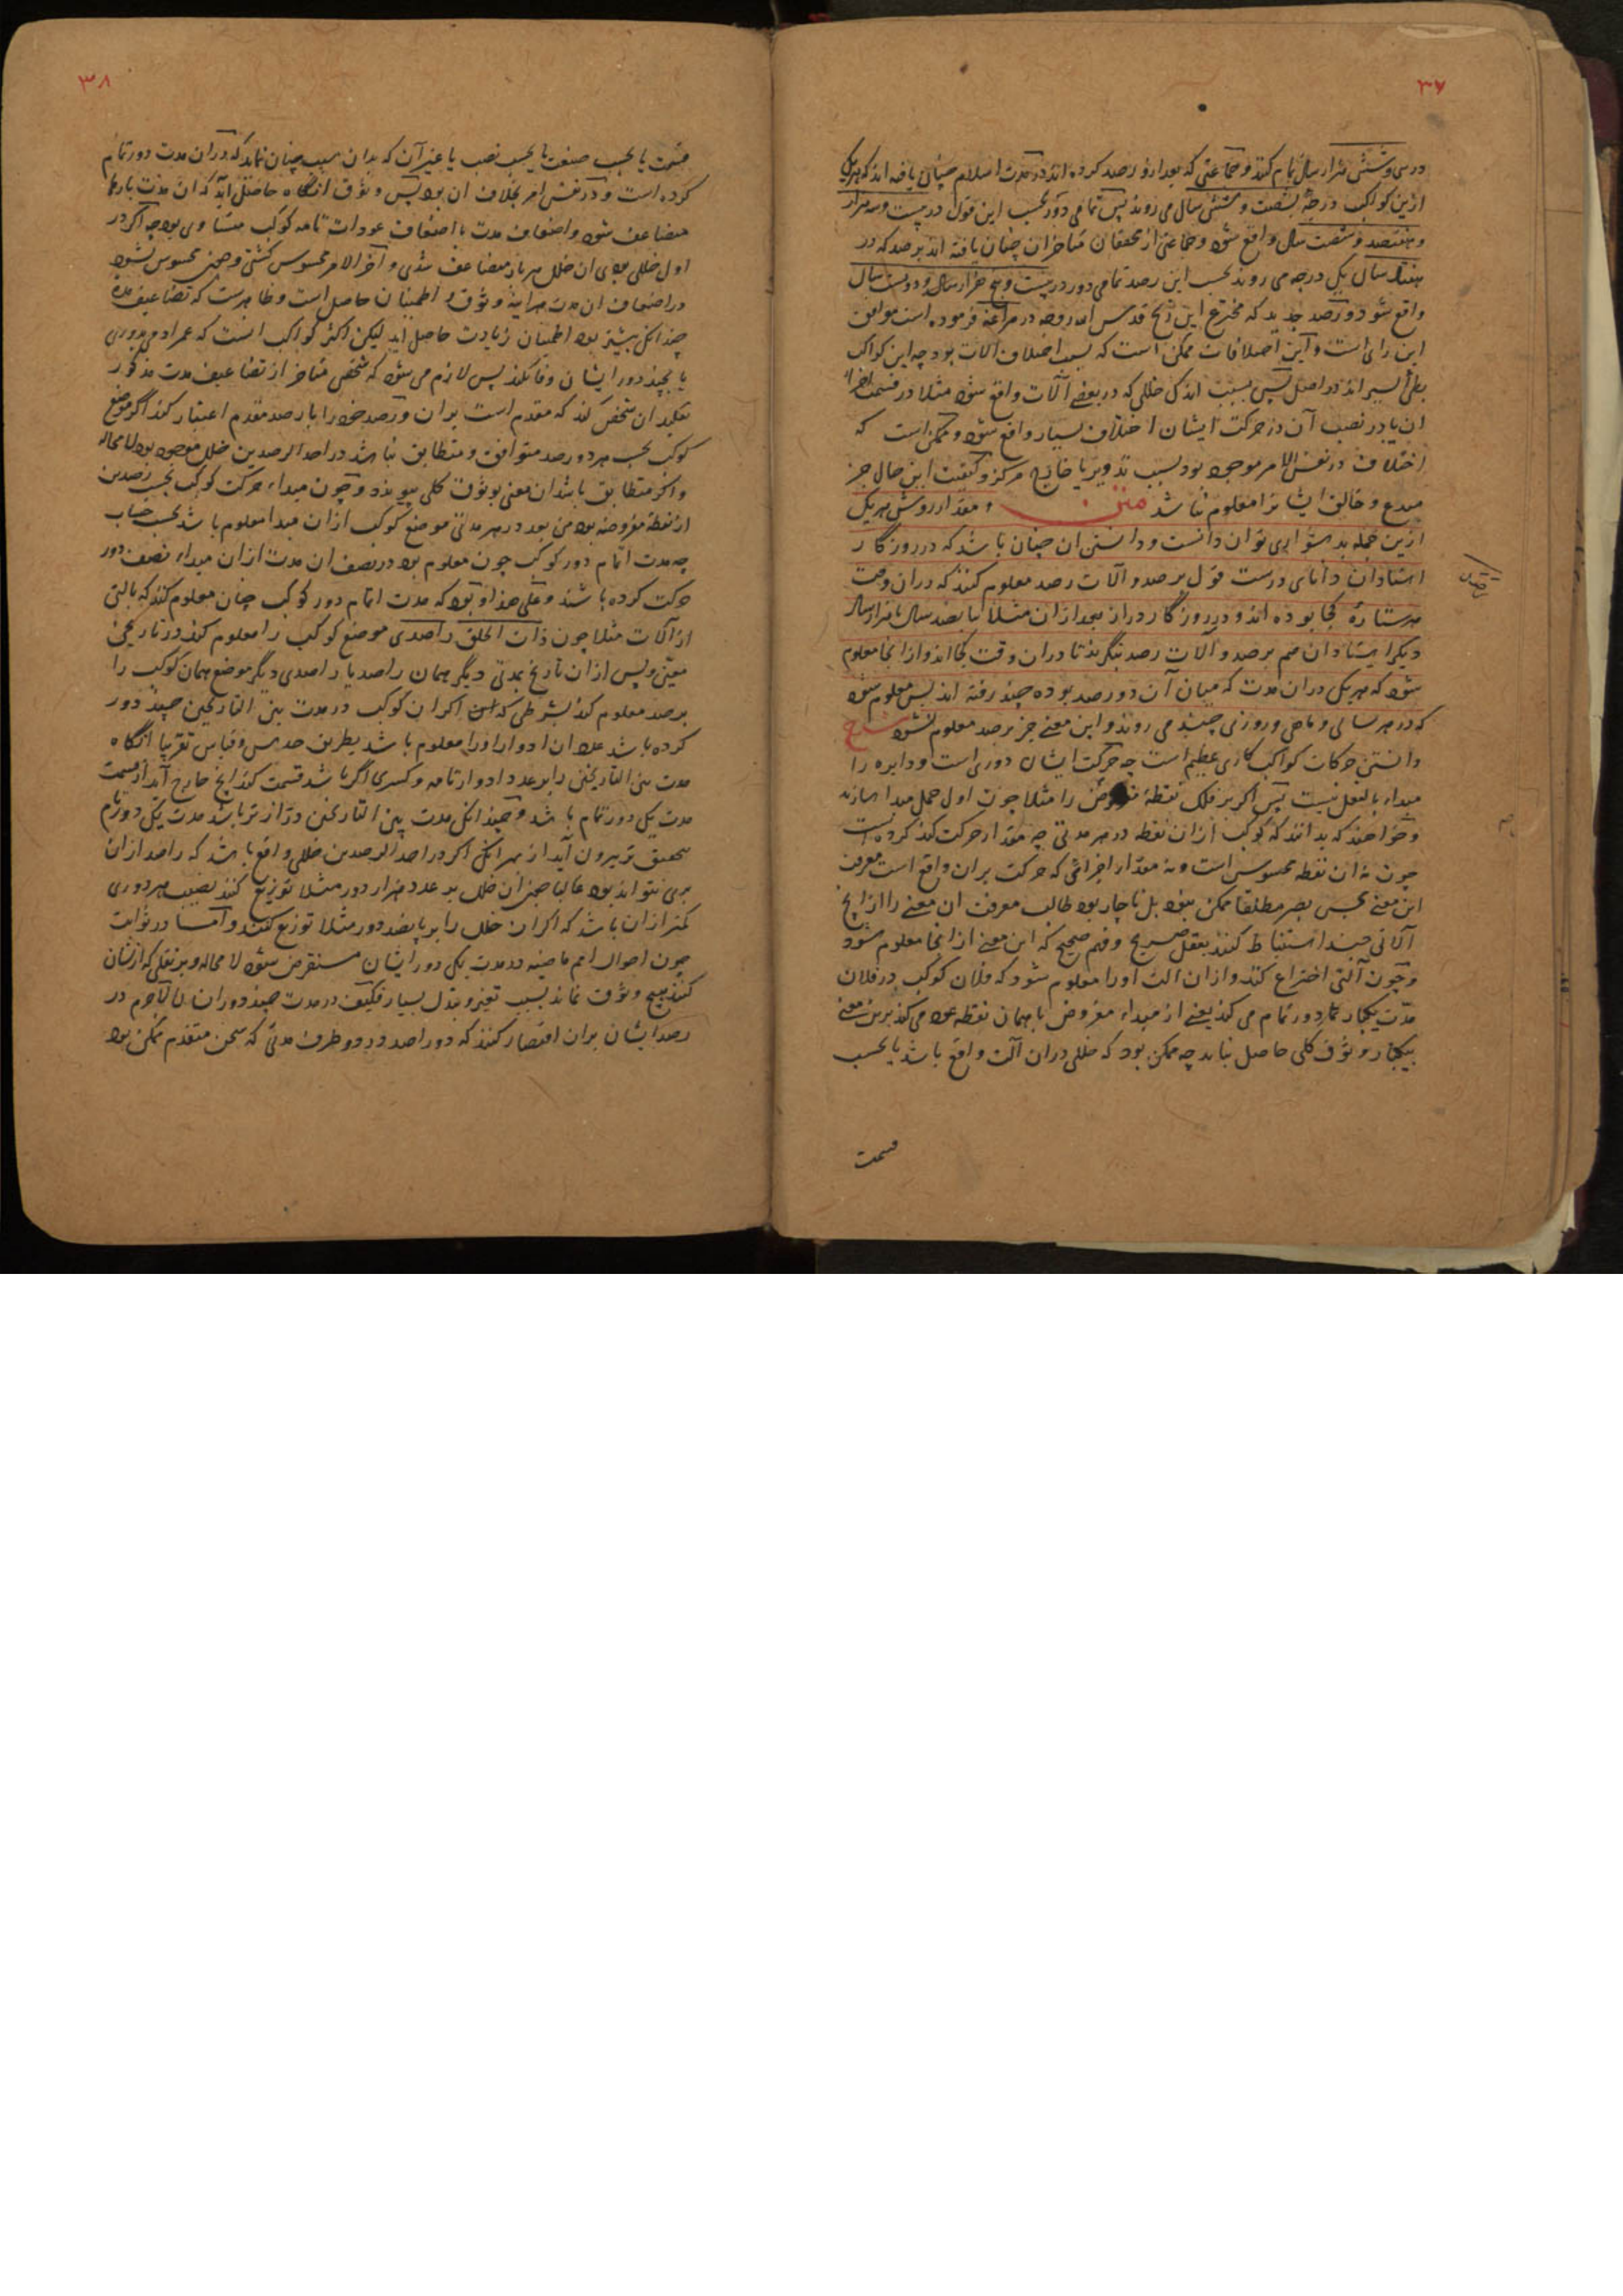 ۳۷
در سی و شش هزار سال تمام کنند و جماعتی که بعد ازو رصد کرده اند در مدت اسلام چنان یافته اند که هریک
ازین کواکب درجهٔ بشصت و شش سال می روند پس تمامی دور بحسب این قول در بیست و سه هزار
و هفتصد و شصت سال واقع شود و جماعتی از محققان متاخران چنان یافته اند برصد که در
هفتاد سال یکی درجه می روند بحسب این رصد تمامی دور در بیست و پنج هزار سال و دویست سال
واقع شود و رصد جدید که مخترع این زیج قدس الله روحه در مراغه فرموده است موافق
این رای است و این اختلافات ممکن است که بسبب اختلاف آلات بود چه این کواکب
بطی السیر اند در اصل پس بسبب اندکی خللی که در بعضی آلات واقع شود مثلا در قسمت اجزاء
ان یا در نصب آن در حرکت ایشان اختلاف بسیار واقع شود و ممکن است که
اختلاف در نفس الامر موجود بود بسبب تدویر یا خارج مرکز و کیفیت این حال جز
مبدع و خالق ایشانرا معلوم نباشد متن و مقدار روش هریک
ازین جمله بدشواری توان دانست و دانستن ان چنان باشد که در روزگار
استادان دانای درست قول برصد و آلات رصد معلوم کنند که دران وقت
هر ستاره کجا بوده اند و در روزگار دراز بعد ازان مثلا پانصد سال یا هزار سال
دیکر استادان هم برصد و آلات رصد بنگرند تا دران وقت کجا اند و از انجا معلوم
شود که هریک دران مدت که میان آن دو رصد بوده چند رفته اند پس معلوم شود
که در هر سالی و ماهی و روزی چند می روند و این معنی جز برصد معلوم نشود شرح
دانستن حرکات کواکب کاری عظیم است چه حرکت ایشان دوری است و دایره را
مبداء بالفعل نیست پس اکر بر فلک نقطهٔ مفروض را مثلا چون اول حمل مبدا سازند
و خواهند که بدانند که کوکب ازان نقطه در هر مدتی چه مقدار حرکت کند کرده است
چون نه ان نقطه محسوس است و نه مقدار اجزائی که حرکت بران واقع است معرفت
این معنی بحس بصر مطلقا ممکن نبود بل ناچار بود طالب معرفت ان معنی را از انچ
آلاتی چند استنباط کنند بعقل صریح و فهم صحیح که این معنی از انجا معلوم شود
و چون آلتی اختراع کند و ازان الت اورا معلوم شود که فلان کوکب در فلان
مدت یکبار دور تمام می کند یعنی از مبداء مفروض با همان نقطه عود می کند برین معنی
بیکبار وثوق کلی حاصل نیاید چه ممکن بود که خللی دران آلت واقع باشد یا بحسب
قسمت
۳۸
قسمت یا بحسب صنعت یا بحسب نصب یا غیر آن که بدان سبب چنان نماید که دران مدت دور تمام
کرده است و در نفس امر بخلاف ان بود پس وثوق انگاه حاصل اید که ان مدت بارها
متضاعف شود و اضعاف مدت با اضعاف عودات تامه کوکب متساوی بود چه اکر در
اول خللی بودی ان خلل هر بار متضاعف شدی و آخر الامر محسوس گشتی و چون محسوس نشود
در اضعاف ان مدت هر اینه وثوق و اطمینان حاصل است و ظاهرست که تضاعیف مدت
چندانکه بیشتر بود اطمینان زیادت حاصل اید لیکن اکثر کواکب انست که عمر ادمی بدوری
یا بچند دور ایشان وفا نکند پس لازم می شود که شخصی متاخر از تضاعیف مدت مذکور
تقلید ان شخص کند که مقدم است بران و رصد خود را با رصد مقدم اعتبار کند اگر موضع
کوکب بحسب هر دو رصد متوافق و متطابق نباشد در احد الرصدین خلل موجود بود لا محاله
و اگر متطابق باشد ان معنی بوثوق کلی پیوندد و چون مبداء حرکت کوکب بحسب رصدین
از نقطهٔ مفروضه بود من بعد در هر مدتی موضع کوکب ازان مبدا معلوم باشد بحسب حساب
چه مدت اتمام دور کوکب چون معلوم بود در نصف ان مدت ازان مبداء نصف دور
حرکت کرده باشد و علی هذا و بود که مدت اتمام دور کوکب چنان معلوم کنند که بالتی
از آلات مثلا چون ذات الحلق راصدی موضع کوکب را معلوم کند در تاریخی
معین و پس ازان تاریخ بمدتی دیگر همان راصد یا راصدی دیگر موضع همان کوکب را
برصد معلوم کند بشرطی که اکر ان کوکب در مدت بین التاریخین چند دور
کرده باشد عدد ان ادوار اورا معلوم باشد بطریق حدس و قیاس تقریبا انگاه
مدت بین التاریخین را بر عدد ادوار تامه و کسری اگر باشد قسمت کند انچ خارج آید از قسمت
مدت یکی دور تمام باشد و چندانکه مدت بین التاریخین درازتر باشد مدت یکی دور تمام
بتحقیق تر بیرون آید از بهر انکه اکر در احد الرصدین خللی واقع باشد که راصد ازان
بری نتواند بود غالبا چون ان خلل بر عدد هزار دور مثلا توزیع کنند نصیب هر دوری
کمتر ازان باشد که اکر ان خلل را بر پانصد دور مثلا توزیع کنند و اما در ثوابت
چون احوال امم ماضیه در مدت یکی دور ایشان مستقرض شود لا محاله و بر نقلی که ازیشان
کنند هیچ وثوق نماند بسبب تغیر و تبدل بسیار فکیف در مدت چند دوران لاجرم در
رصد ایشان بران اقتصار کنند که دو راصد در دو طرف مدتی که سخن متقدم ممکن بود